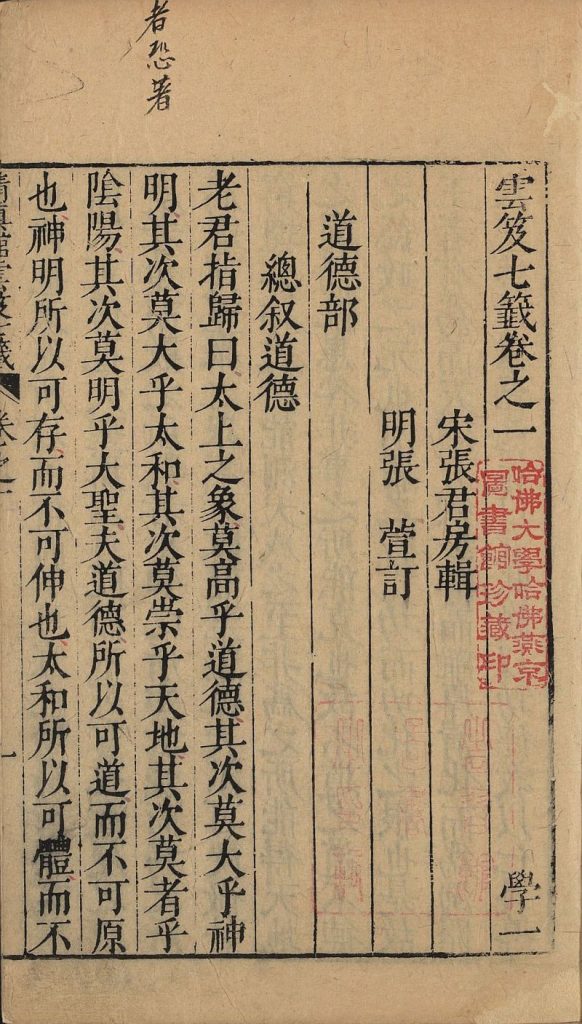 者恐著
雲笈七籤卷之一
學一
宋張君房輯
明張 萱訂
道德部
總叙道德
老君指歸曰太上之象莫高乎道德其次莫大乎神
明其次莫大乎太和其次莫崇乎天地其次莫者乎
陰陽其次莫明乎大聖夫道德所以可道而不可原
也神明所以可存而不可伸也太和所以可體而不
清真館雲笈七籤
卷之一
一
哈佛大學哈佛燕京
圖書館珍藏印